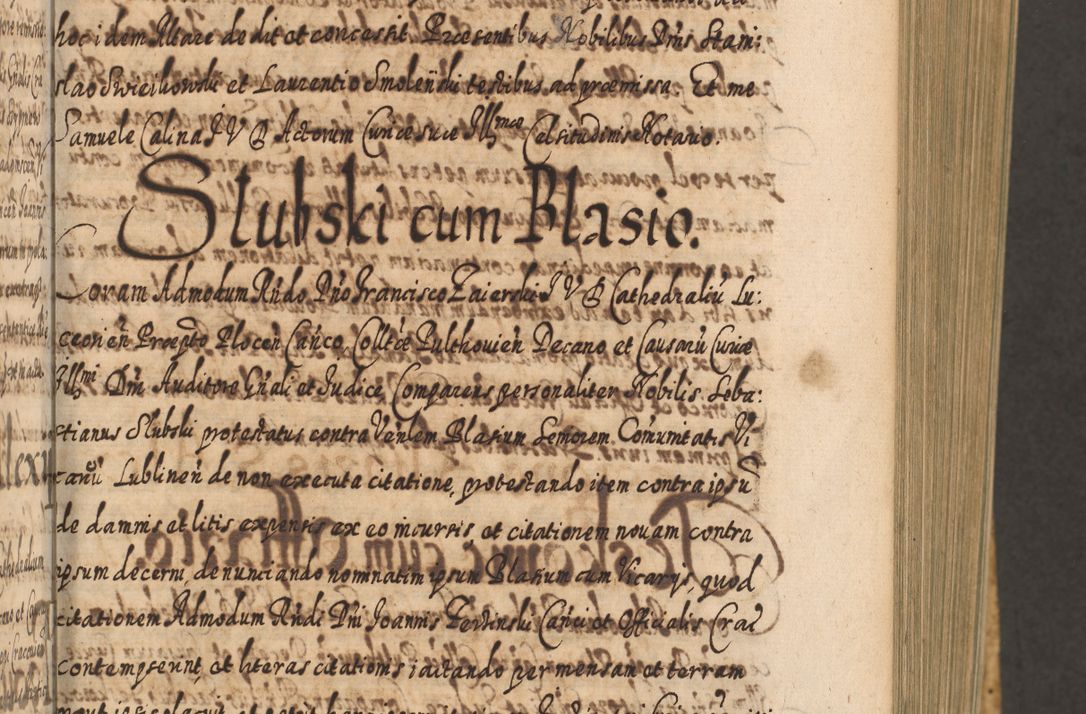 hoc idem Altare dedit et concessit Præsentibus Nobilibus Dnis Stani:
slao Swiechowski et Laurentio Smolenski testibus ad præmissa Et me
Samuele Calina I V D Actorum Curiæ suæ Illmæ Celsitudinis Notario.
Slubski cum Blasio.
Coram Admodum Rndo Dno Francisco Zaierski I V D Cathedraliū Lu:
ceorien Præpto Plocen Canco, Colltæ Pulthovien Decano et Causarū Curiæ
Illmi Dni Auditore Gnali et Iudice Comparens personaliter Nobilis Seba:
stianus Slubski protestatus contra Venlem Blasium Seniorem Cōmunitatis Vi
cariū Lublinen de non executa citatione, protestando item contra ipsū
de damnis et litis expensis ex eo incursis, et citationem novam contra
ipsum decerni, denunciando nominatim ipsum Blasium cum Vicarijs, quod
citationem Admodum Rndi Dni Ioannis Canci et Officialis Crac
contempserunt, et literas citationis iactando per mensam et terram